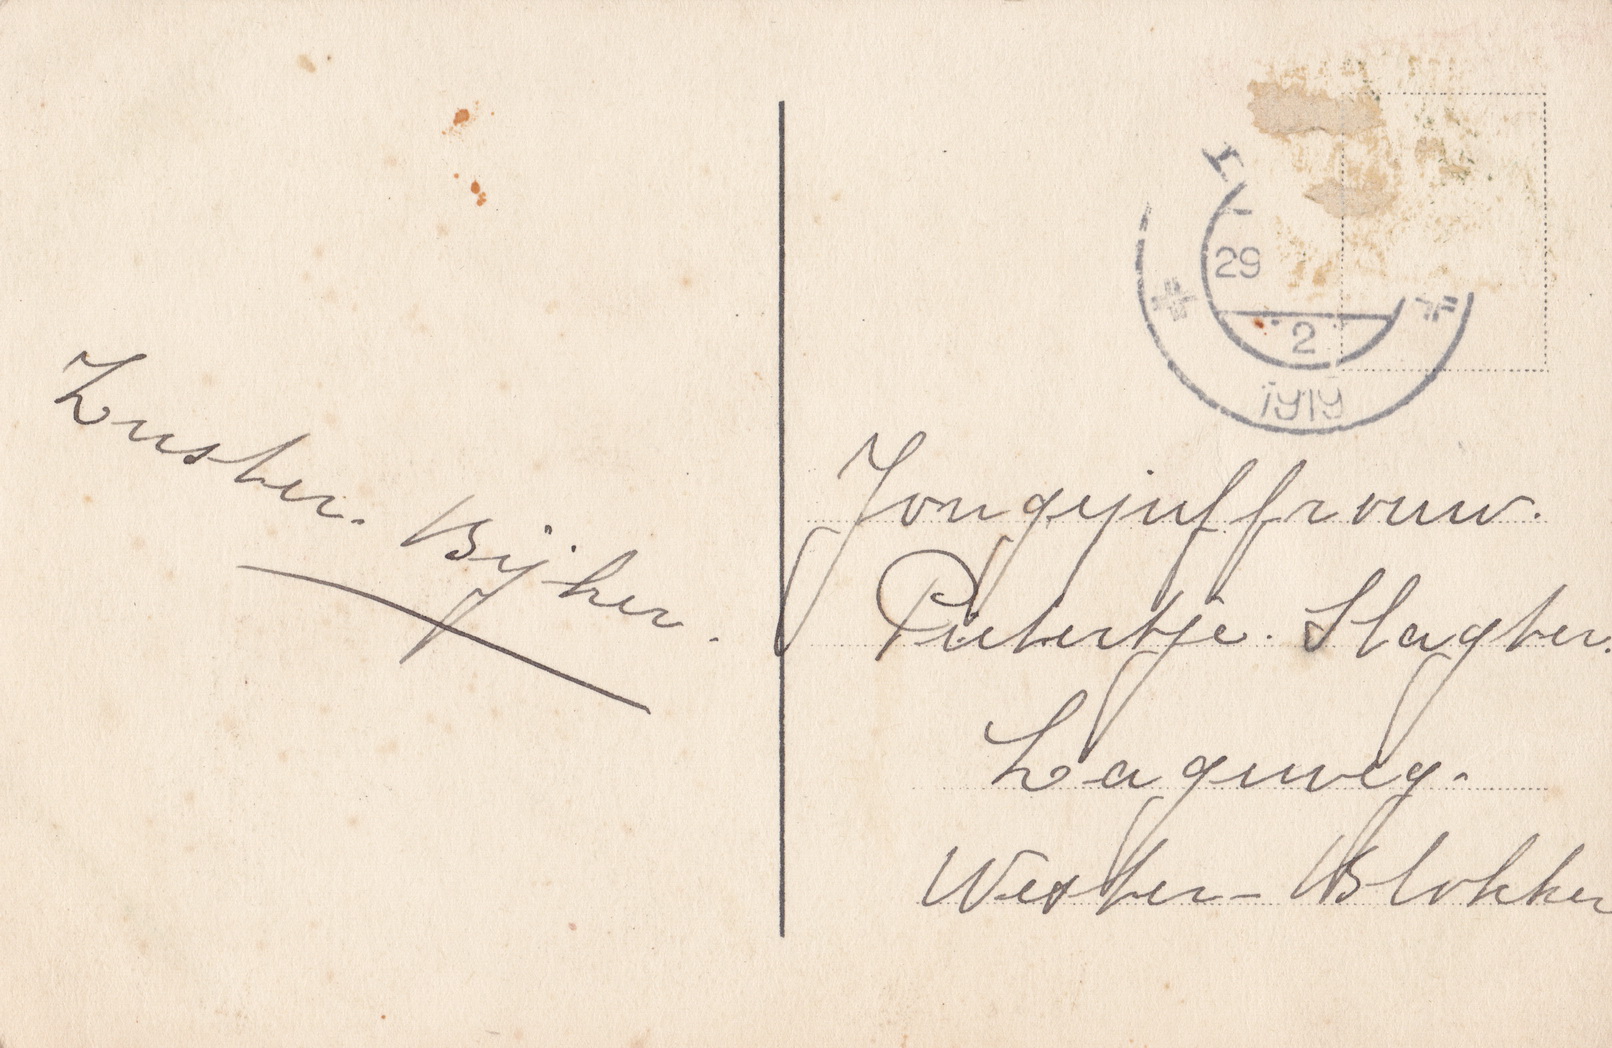 Zuster. Bijker.
29
2
1919
Jongejuffrouw.
Pietertje. Slagter.
Lageweg.
Wester-Blokker